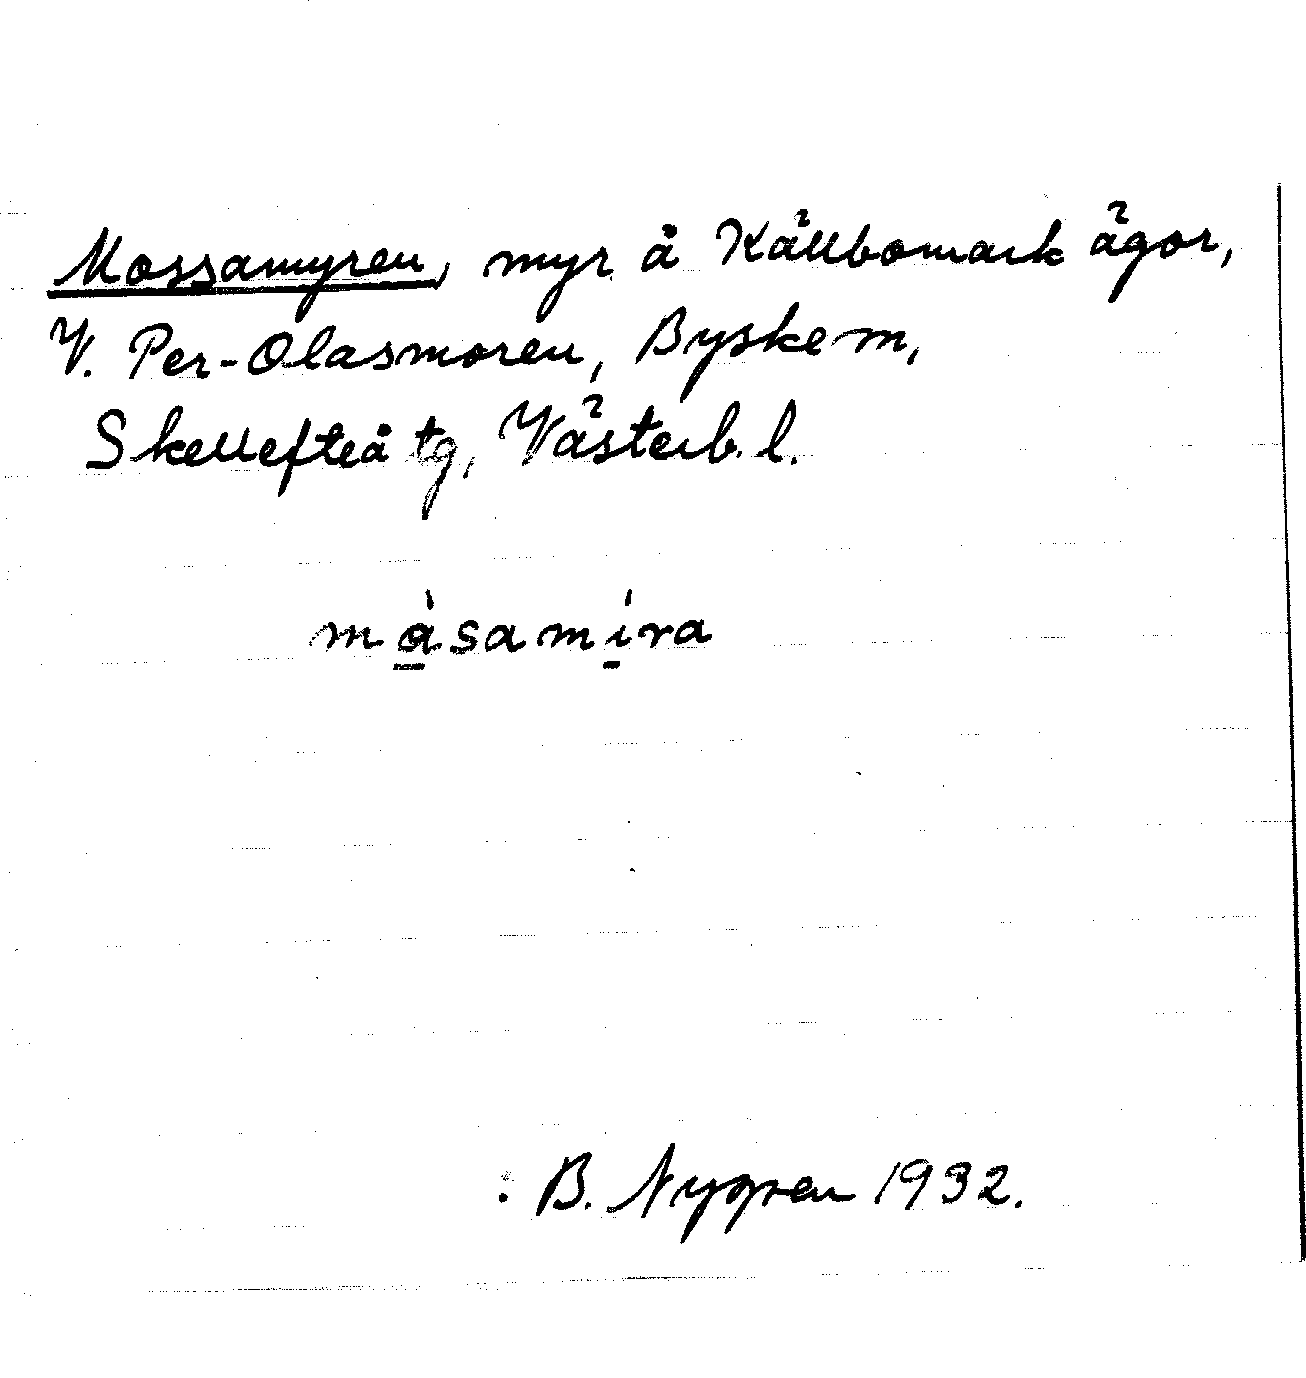 Mossamyren, myr å Källbomark ägor,
V. Per-Olasmoren, Byske sn,
Skellefteå tg, Västerb. l.
màsamíra
: B. Nygren 1932.